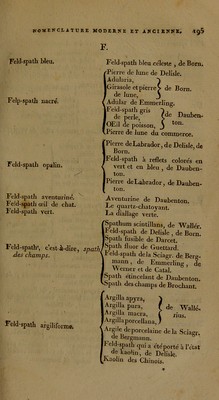 NOMENCLATURE MODERNE ET ANCIENNE. 495
F.
Feld-spath bleu. Feld-spath bleu céleste, de Born.
Pierre de lune de Delisle.
Adularia,
Girasole et pierre de lune, de Born.
Felp-spath nacré. Adular de Emmerling.
Feld-spath gris de perle,
Œil de poisson, de Daubenton.
Pierre de lune du commerce.
Pierre de Labrador, de Delisle, de Born.
Feld-spath opalin. Feld-spath à reflets colorés en vert et en bleu, de Daubenton.
Pierre de Labrador, de Daubenton.
Feld-spath aventuriné. Aventurine de Daubenton.
Feld-spath œil de chat. Le quartz-chatoyant.
Feld-spath vert. La diallage verte.
Spathum scintillans, de Wallér.
Feld-spath de Delisle, de Born.
Spath fusible de Darcet.
Feld-spath, c'est-à-dire, spath des champs. Spath fluor de Guettard.
Feld-spath de la Sciagr. de Bergmann, de Emmerling, de Werner et de Catal.
Spath étincelant de Daubenton.
Spath des champs de Brochant.
Argilla apyra,
Argilla pura,
Argilla macra,
Argilla porcellana, de Wallérius.
Feld-spath argiliforme. Argile de porcelaine de la Sciagr. de Bergmann.
Feld-spath qui a été porté à l'état de kaolin, de Delisle.
Kaolin des Chinois.